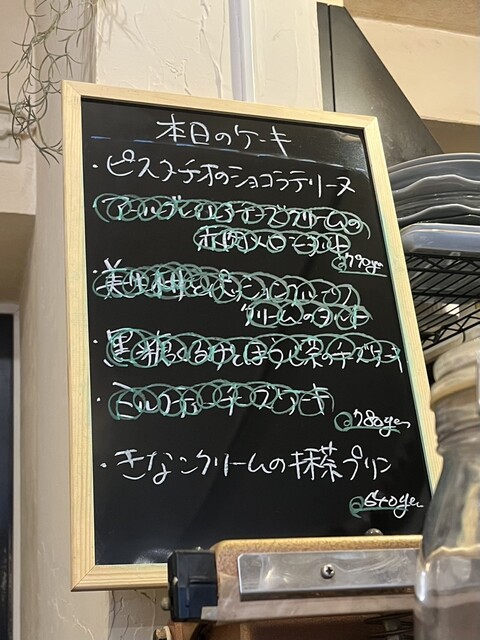 本日のケーキ
・ピスタチオのショコラテリーヌ
アールグレイとチーズクリームの
赤肉メロンタルト
790yen
・美生柑とパッションフルーツ
クリームのタルト
・黒糖くるみとほうじ茶のチーズケーキ
・ミルクティーチーズケーキ
780yen
・きなこクリームの抹茶プリン
640yen